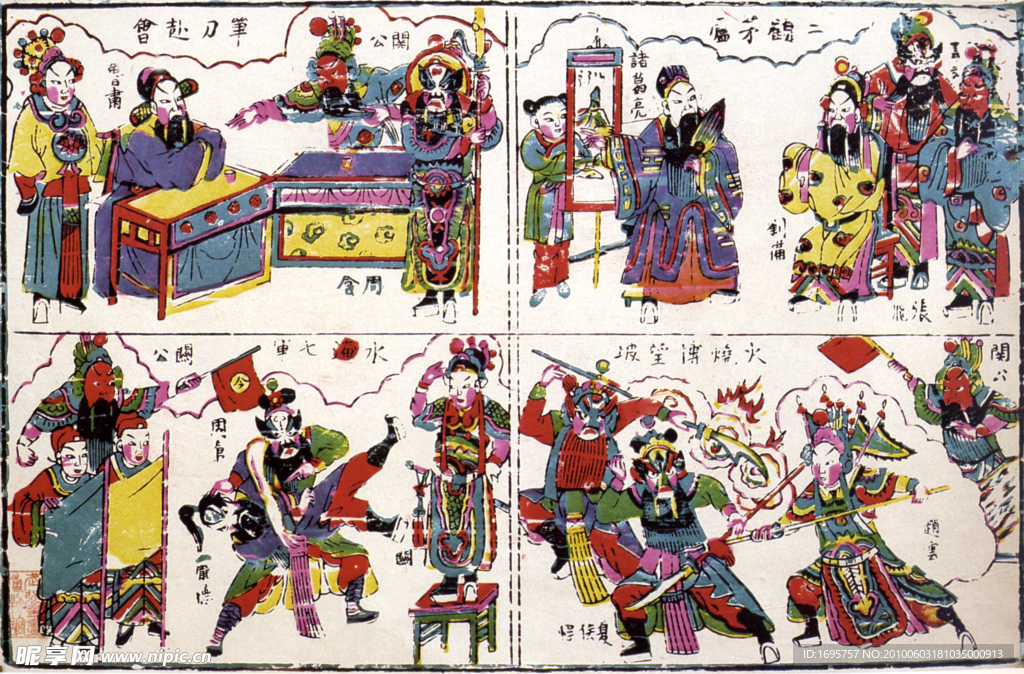 筆刀赴會
關公
魯肅
周倉
諸葛亮
劉備
張飛
水淹七軍
關公
令
周倉
龐德
關
火燒博望坡
關公
趙雲
夏侯惇
昵享网 www.nipic.cn
ID:1695757 NO:20100603181035000913